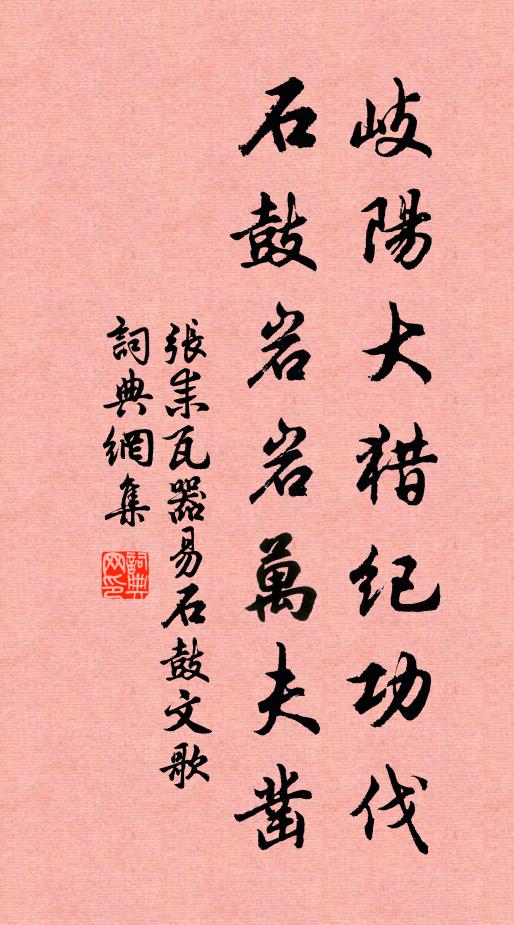 岐陽大猎纪功伐
石鼓岩岩萬夫凿
張耒瓦器易石鼓文歌
詞典網集
詞典网印